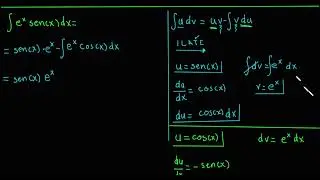 ∫ eˣ sen(x) dx =
= sen(x)·eˣ - ∫ eˣ cos(x) dx
= sen(x) eˣ
∫ u dv = uv - ∫ v du
ILATE
u = sen(x)
∫ dv = ∫ eˣ dx
du/dx = cos(x)
v = eˣ
du = cos(x) dx
u = cos(x)
dv = eˣ dx
du/dx = - sen(x)